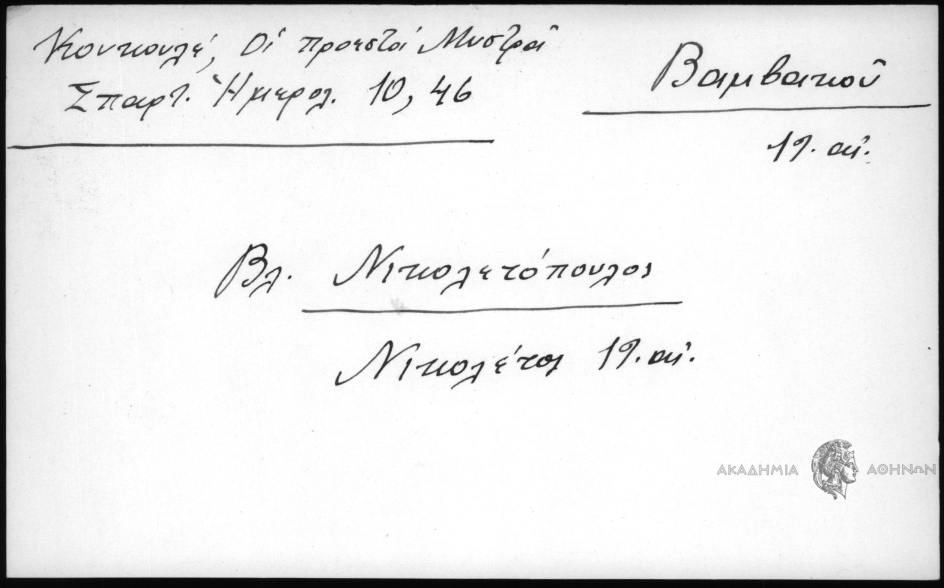 Κουκουλέ, Οἱ προεστοί Μυστρᾶ
Σπαρτ. Ἡμερολ. 10, 46
Βαμβακοῦ
19. αἰ.
Βλ. Νικολετόπουλος
Νικολέτος 19. αἰ.
ΑΚΑΔΗΜΙΑ ΑΘΗΝΩΝ